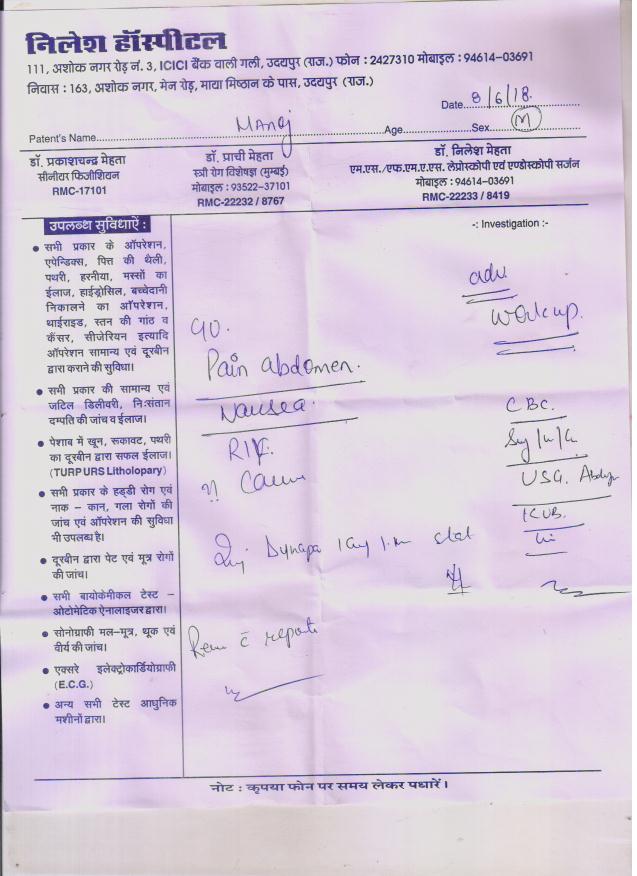 निलेश हॉस्पीटल
111, अशोक नगर रोड़ नं. 3, ICICI बैंक वाली गली, उदयपुर (राज.) फोन : 2427310 मोबाइल : 94614-03691
निवास : 163, अशोक नगर, मेन रोड़, माया मिष्ठान के पास, उदयपुर (राज.)
Date 8/6/18.
Patent's Name Manoj Age Sex M
डॉ. प्रकाशचन्द्र मेहता
सीनीयर फिजीशियन
RMC-17101
डॉ. प्राची मेहता
स्त्री रोग विशेषज्ञ (मुम्बई)
मोबाइल : 93522-37101
RMC-22232 / 8767
डॉ. निलेश मेहता
एम.एस./एफ.एम.ए.एस. लेप्रोस्कोपी एवं एण्डोस्कोपी सर्जन
मोबाइल : 94614-03691
RMC-22233 / 8419
उपलब्ध सुविधाऐं :
• सभी प्रकार के ऑपरेशन,
एपेन्डिक्स, पित्त की थैली,
पथरी, हरनीया, मस्सों का
ईलाज, हाईड्रोसिल, बच्चेदानी
निकालने का ऑपरेशन,
थाईराइड, स्तन की गांठ व
कैंसर, सीजेरियन इत्यादि
ऑपरेशन सामान्य एवं दूरबीन
द्वारा कराने की सुविधा।
• सभी प्रकार की सामान्य एवं
जटिल डिलीवरी, निःसंतान
दम्पति की जांच व ईलाज।
• पेशाब में खून, रूकावट, पथरी
का दूरबीन द्वारा सफल ईलाज।
(TURP URS Litholopary)
• सभी प्रकार के हड्डी रोग एवं
नाक - कान, गला रोगों की
जांच एवं ऑपरेशन की सुविधा
भी उपलब्ध है।
• दूरबीन द्वारा पेट एवं मूत्र रोगों
की जांच।
• सभी बायोकेमीकल टेस्ट -
ओटोमेटिक ऐनालाइजर द्वारा।
• सोनोग्राफी मल-मूत्र, थूक एवं
वीर्य की जांच।
• एक्सरे इलेक्ट्रोकार्डियोग्राफी
(E.C.G.)
• अन्य सभी टेस्ट आधुनिक
मशीनों द्वारा।
Pain abdomen.
Nausea.
RIF.
Inj Dynapa 1 amp I.M stat
Rev c̄ reports
-: Investigation :-
adv
Workup.
CBC.
USG. Abdm
KUB.
नोट : कृपया फोन पर समय लेकर पधारें।